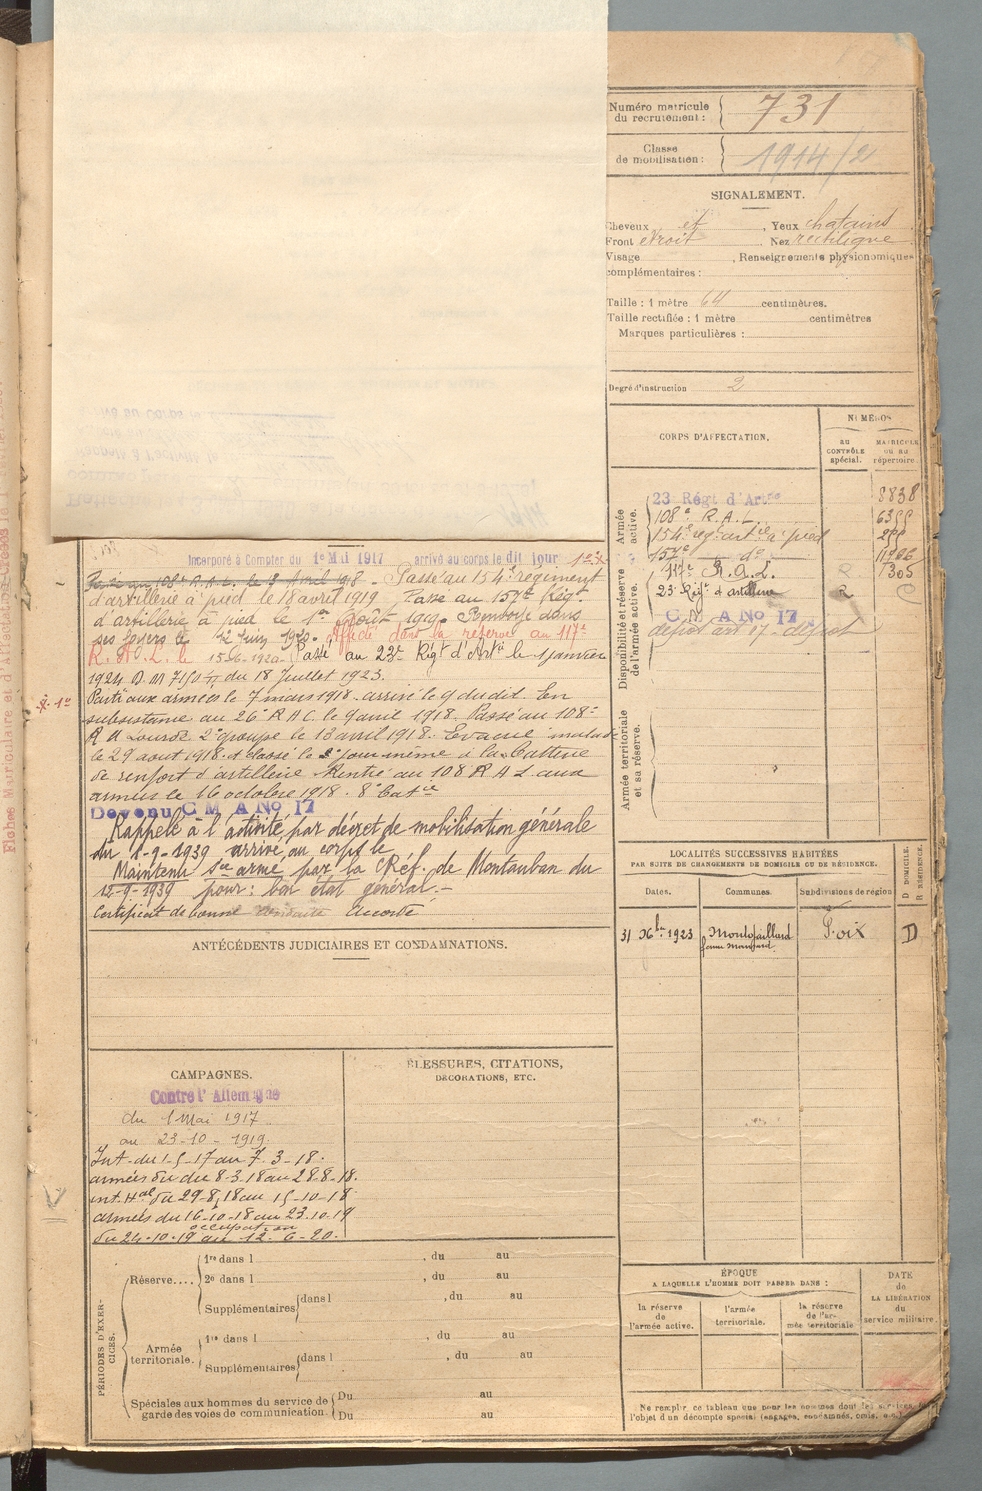 Numéro matricule
du recrutement :
731
Classe
de mobilisation :
1914/2
SIGNALEMENT.
Cheveux et , Yeux chatains
Front étroit . Nez rectiligne
Visage , Renseignements physionomiques
complémentaires :
Taille : 1 mètre 64 centimètres.
Taille rectifiée : 1 mètre centimètres
Marques particulières :
Degré d'instruction 2
CORPS D'AFFECTATION.
NUMÉROS
au
CONTRÔLE
spécial.
MATRICULE
ou au
répertoire.
Armée
active.
23 Régt d'Art 8838
108e R.A.L.
154e reg. art ie à pied
157e do
Disponibilité et réserve
de l'armée active.
117e R.A.L. R 1305
23e Régt d'artillerie R C
C M A No 17
depot art 17 - depot
Armée territoriale
et sa réserve.
Incorporé à Compter du 1e Mai 1917 arrivé au corps le dit jour
Passé au 108e R.A.L. le 13 Avril 1918 - Passé au 154e régiment
d'artillerie à pied le 18 avril 1919 Passé au 157e Régt
d'artillerie à pied le 1er Août 1919. Renvoyé dans
ses foyers le 12 Juin 1920. Affecté dans la réserve au 117e
R. A. L. le 15-6-1920. Passé au 23e Régt d'Artie le 1 janvier
1924 D. M du 18 juillet 1923.
Parti aux armées le 7 mars 1918 - arrivé le 9 du dit. En
subsistance au 26e R A C. le 9 avril 1918. Passé au 108e
R A Lourde 2e groupe le 13 avril 1918. Evacué malade
le 29 aout 1918. et classé le jour même à la batterie
de renfort d'artillerie Rentré au 108 R A L aux
armées le 16 octobre 1918. 8e batie
Devenu C M A No 17
Rappelé à l'activité par décret de mobilisation générale
du 1-9-1939 arrivé au corps le
Maintenu Sce armé par la C Réf. de Montauban du
12-9-1939 pour : bon état général. -
Certificat de bonne conduite Accordé
ANTÉCÉDENTS JUDICIAIRES ET CONDAMNATIONS.
LOCALITÉS SUCCESSIVES HABITÉES
PAR SUITE DE CHANGEMENTS DE DOMICILE OU DE RÉSIDENCE.
Dates. Communes. Subdivisions de région
D DOMICILE.
R RÉSIDENCE.
31 Xbre 1923 Montgaillard Foix D
CAMPAGNES.
Contre l'Allemagne
du 1 Mai 1917
au 23-10-1919.
Int. du 1-5-17 au 7-3-18.
armées du 8-3-18 au 28-8-18.
int. Hal du 29-8-18 au 15-10-18
armées du 16-10-18 au 23-10-19
occupation
du 24-10-19 au 12-6-20.
BLESSURES, CITATIONS,
DÉCORATIONS, ETC.
PÉRIODES D'EXERCICES.
Réserve....
1re dans l , du au
2e dans l , du au
Supplémentaires dans l , du au
Armée
territoriale.
1re dans l , du au
Supplémentaires dans l , du au
Spéciales aux hommes du service de
garde des voies de communication.
Du au
Du au
ÉPOQUE
A LAQUELLE L'HOMME DOIT PASSER DANS :
la réserve
de
l'armée active.
l'armée
territoriale.
la réserve
de l'ar-
mée territoriale
DATE
de
LA LIBÉRATION
du
service militaire.
Ne remplir ce tableau que pour les hommes dont les services
l'objet d'un décompte spécial (engagés, condamnés, omis, etc.)